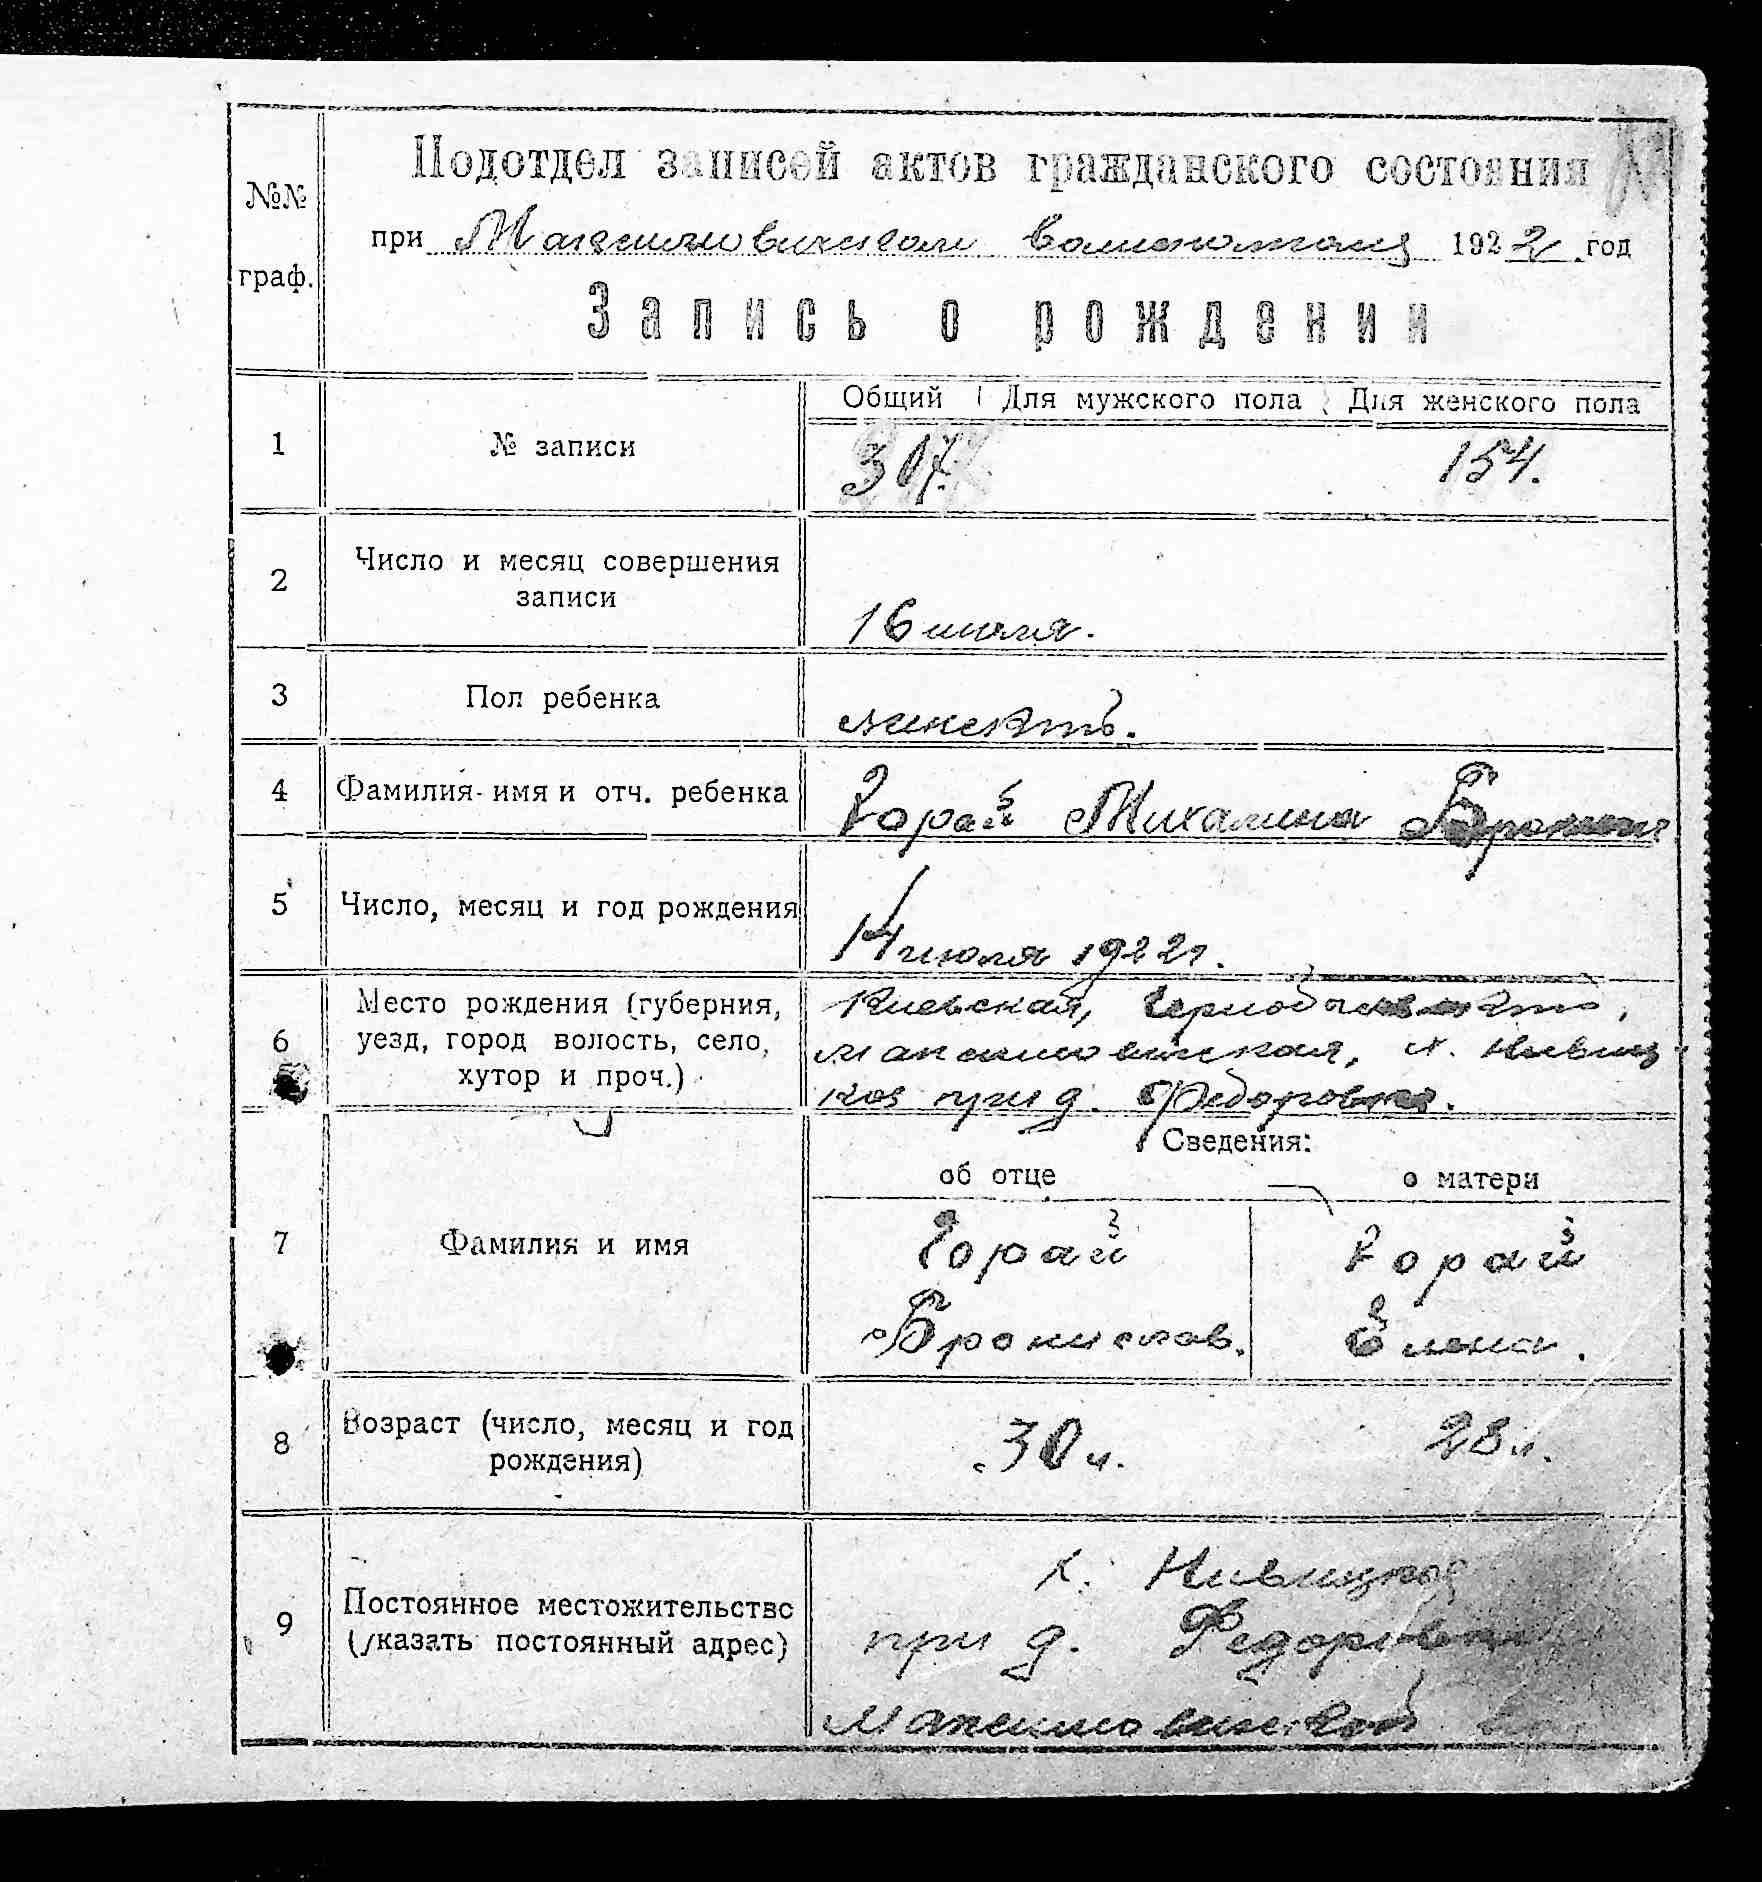 №№ граф.
Подотдел записей актов гражданского состояния
при Максимовичском 1922 год
Запись о рождении
Общий Для мужского пола Для женского пола
1 № записи 307. 154.
2 Число и месяц совершения записи 16 июля.
3 Пол ребенка женскть.
4 Фамилия имя и отч. ребенка Горай Михалина
5 Число, месяц и год рождения 14 июля 1922 г.
6 Место рождения (губерния, уезд, город волость, село, хутор и проч.)
Киевская,
максимовичская, х. Нивиц
кое при д. Федоровка.
Сведения:
об отце о матери
7 Фамилия и имя
Горай Горай
Бронислав. Елена.
8 Возраст (число, месяц и год рождения) 30 л. 28 л.
9 Постоянное местожительство (указать постоянный адрес)
х. Нивицкое
при д. Федоровка
максимовичской